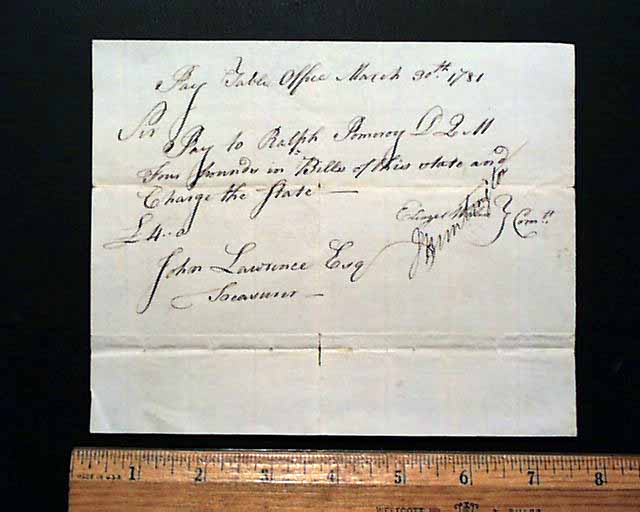 Pay Table Office March 30th 1781
Sir
Pay to Ralph Pomeroy D Q M
Four pounds in Bills of this state and
Charge the State
£4..0
Comtt
John Lawrence Esq
Treasurer
MADE IN U.S.A.
1 2 3 4 5 6 7 8
WESTCOTT